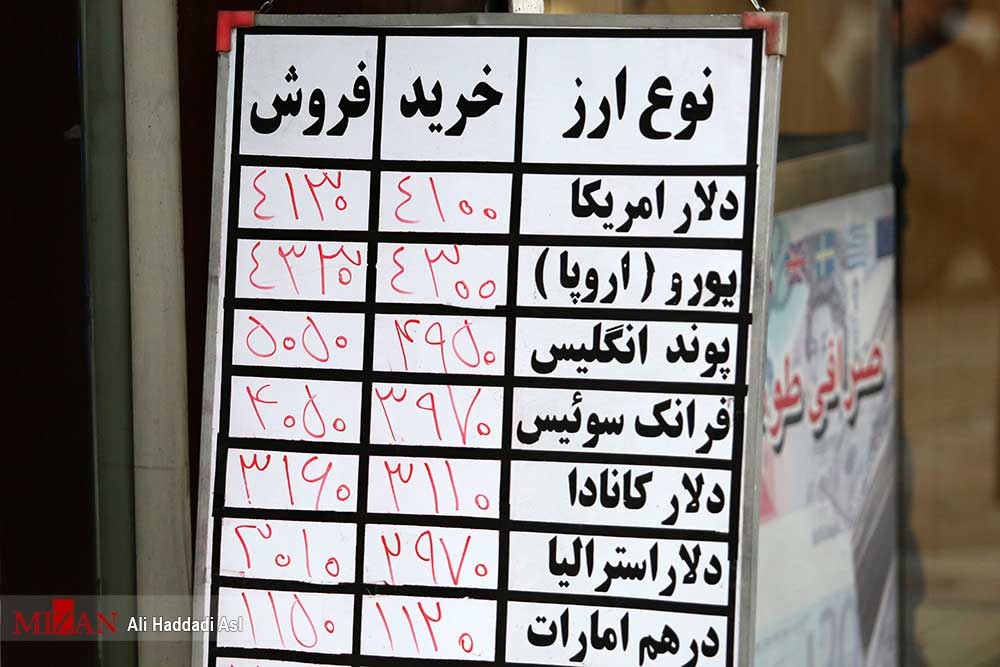 نوع ارز خرید فروش
دلار امریکا ۴۱۰۰ ۴۱۳۰
یورو ( اروپا ) ۴۳۰۰ ۴۳۳۰
پوند انگلیس ۴۹۵۰ ۵۰۵۰
فرانک سوئیس ۳۹۷۰ ۴۰۵۰
دلار کانادا ۳۱۱۰ ۳۱۹۰
دلار استرالیا ۲۹۷۰ ۳۰۱۰
درهم امارات ۱۱۲۰ ۱۱۵۰
صرافی
MIZAN Ali Haddadi Asl